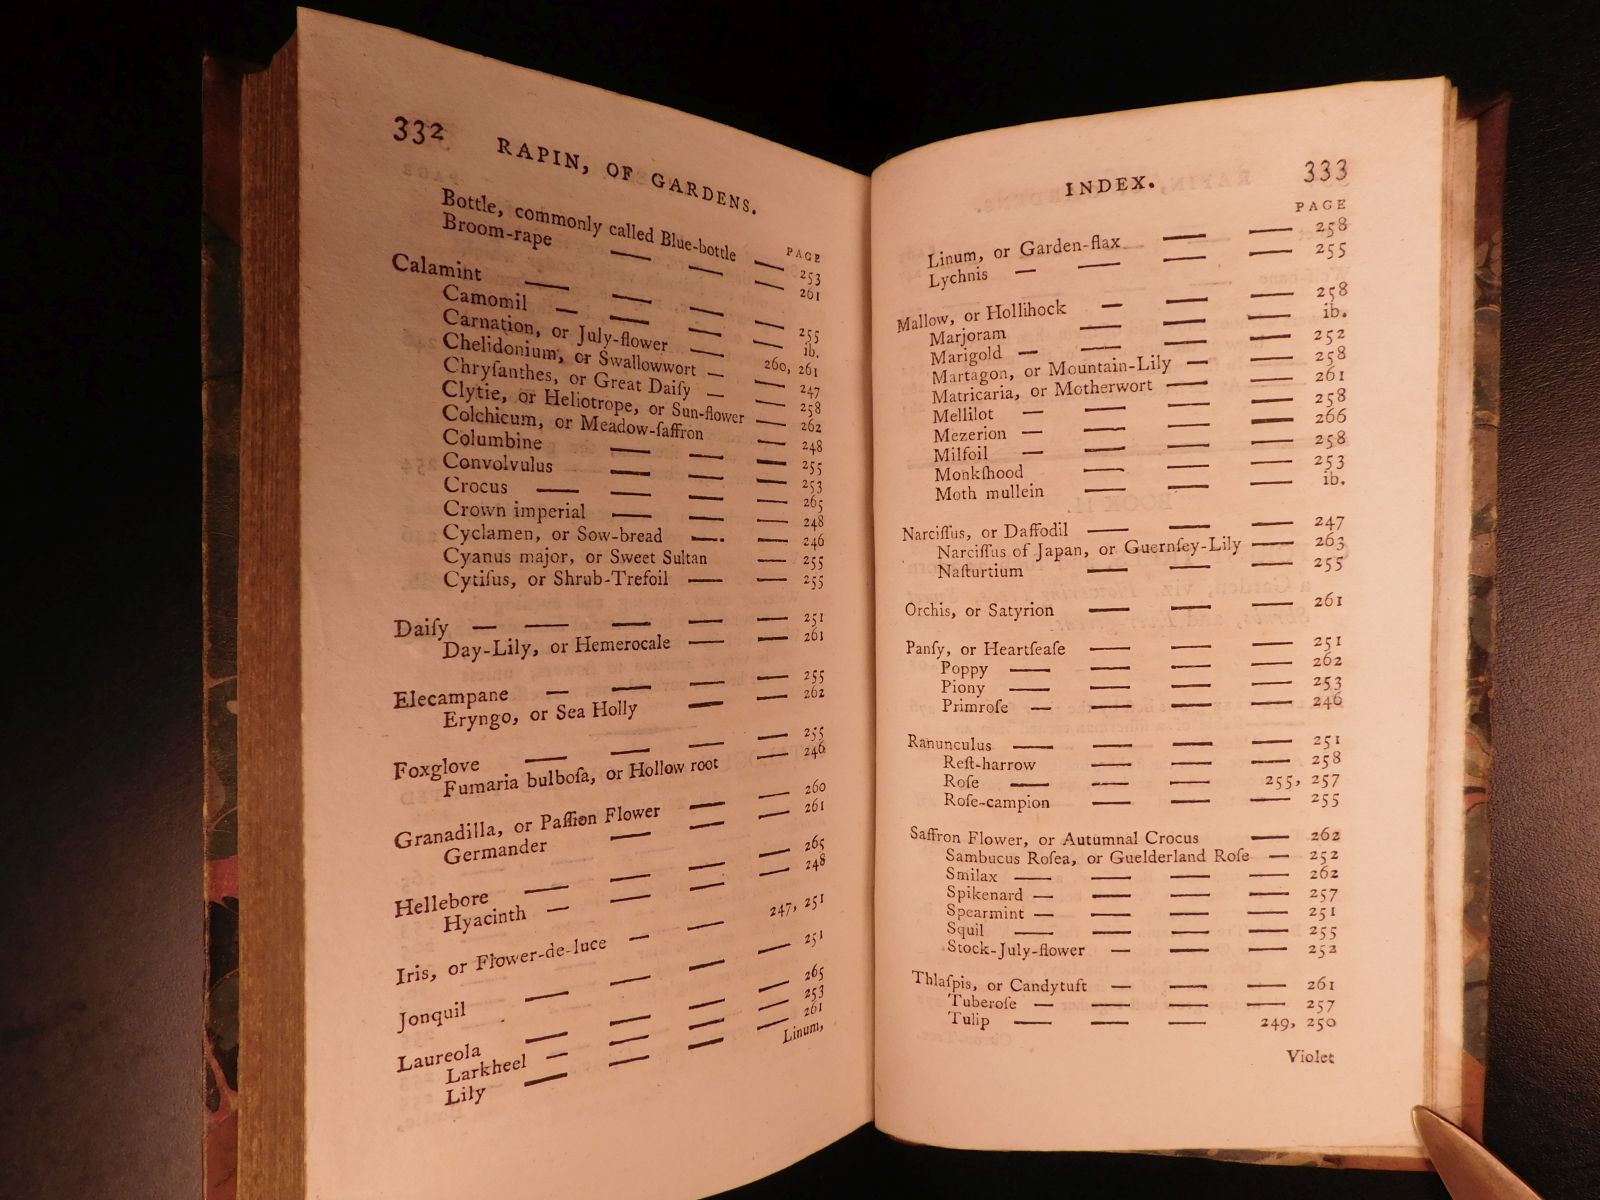 332 RAPIN, OF GARDENS.
PAGE
Bottle, commonly called Blue-bottle — 253
Broom-rape — — — 261
Calamint — — — 255
Camomil — — — — ib.
Carnation, or July-flower — 260, 261
Chelidonium, or Swallowwort — — 247
Chryſanthes, or Great Daiſy — — 258
Clytie, or Heliotrope, or Sun-flower — 262
Colchicum, or Meadow-ſaffron — 248
Columbine — — — 255
Convolvulus — — — 253
Crocus — — — — 265
Crown imperial — — — 248
Cyclamen, or Sow-bread — — 246
Cyanus major, or Sweet Sultan — 255
Cytiſus, or Shrub-Trefoil — — 255
Daiſy — — — — — 251
Day-Lily, or Hemerocale — — 261
Elecampane — — — — 255
Eryngo, or Sea Holly — — 262
Foxglove — — — — 255
Fumaria bulboſa, or Hollow root — 246
Granadilla, or Paſſion Flower — — 260
Germander — — — 261
Hellebore — — — — 265
Hyacinth — — — — 248
Iris, or Flower-de-luce — — 247, 251
Jonquil — — — — 251
Laureola — — — — 265
Larkheel — — — — 253
Lily — — — — 261
Linum,
INDEX. 333
PAGE
Linum, or Garden-flax — — 258
Lychnis — — — — 255
Mallow, or Hollihock — — — 258
Marjoram — — — ib.
Marigold — — — — 252
Martagon, or Mountain-Lily — — 258
Matricaria, or Motherwort — — 261
Mellilot — — — — 258
Mezerion — — — — 266
Milfoil — — — — 258
Monkſhood — — — 253
Moth mullein — — — ib.
Narciſſus, or Daffodil — — — 247
Narciſſus of Japan, or Guernſey-Lily — 263
Naſturtium — — — 255
Orchis, or Satyrion — — — 261
Panſy, or Heartſeaſe — — — 251
Poppy — — — — 262
Piony — — — — 253
Primroſe — — — — 246
Ranunculus — — — — 251
Reſt-harrow — — — 258
Roſe — — — 255, 257
Roſe-campion — — — 255
Saffron Flower, or Autumnal Crocus — 262
Sambucus Roſea, or Guelderland Roſe — 252
Smilax — — — — 262
Spikenard — — — — 257
Spearmint — — — — 251
Squil — — — — 255
Stock-July-flower — — — 252
Thlaſpis, or Candytuft — — — 261
Tuberoſe — — — — 257
Tulip — — — 249, 250
Violet